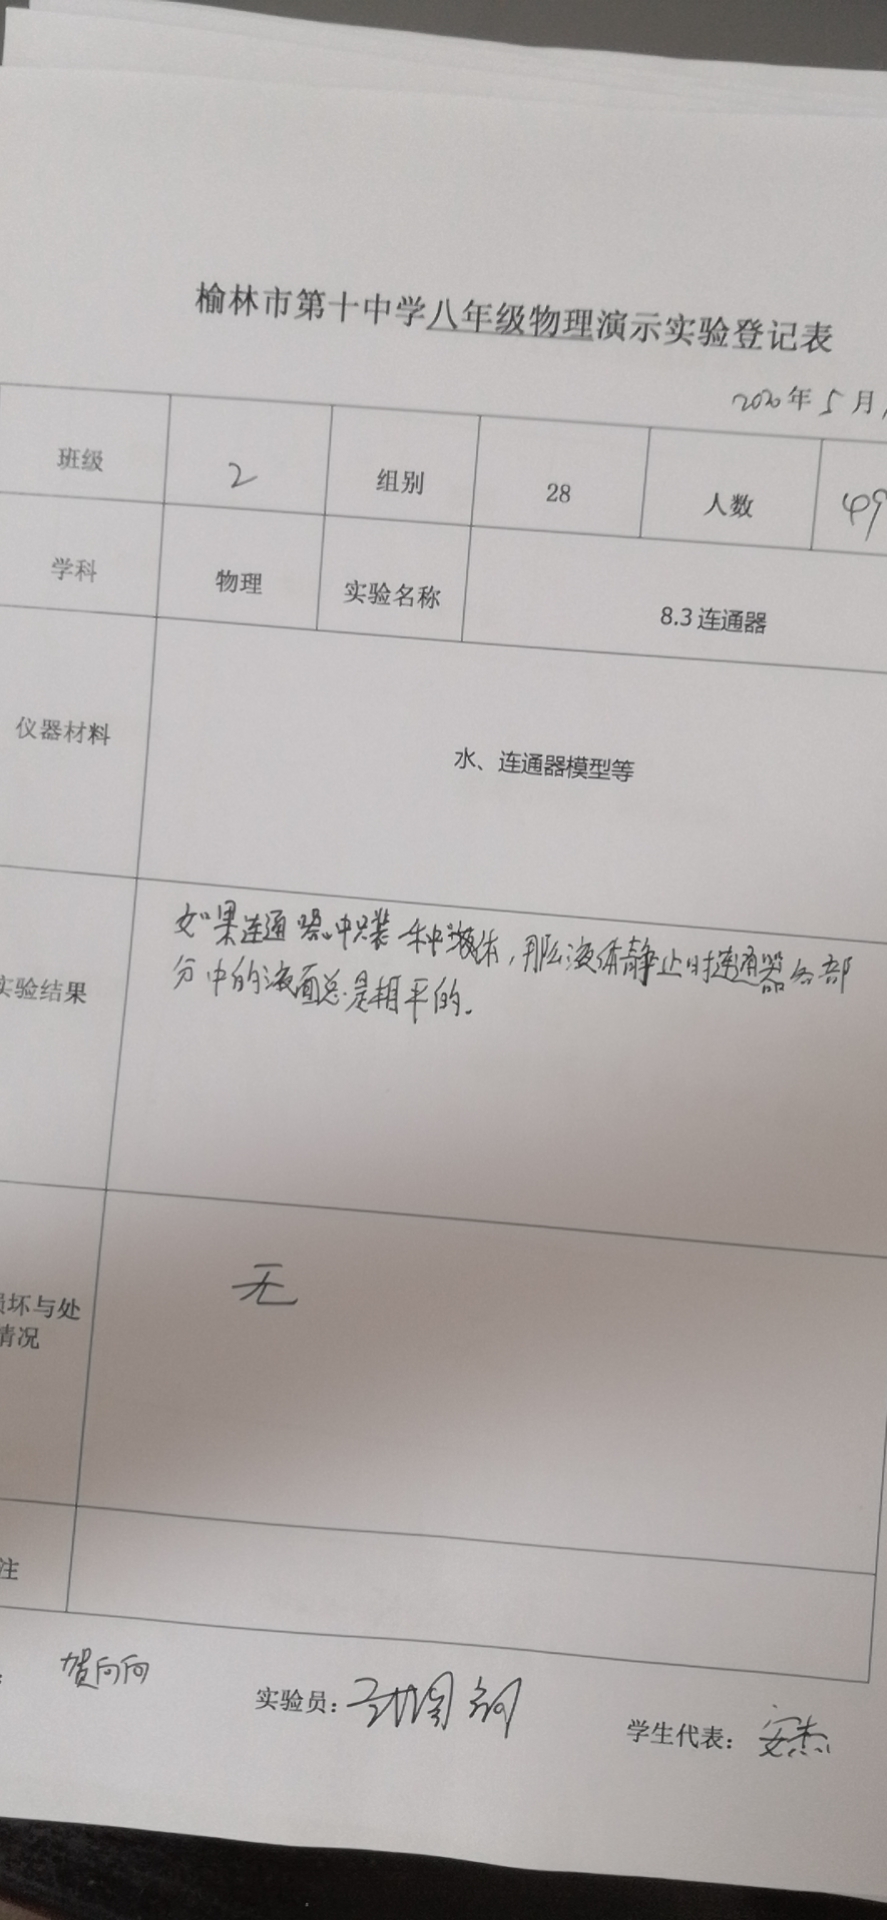 榆林市第十中学八年级物理演示实验登记表
2020年5月
班级 2 组别 28 人数 49
学科 物理 实验名称 8.3连通器
仪器材料 水、连通器模型等
实验结果 如果连通器中只装一种液体，那么液体静止时连通器各部
分中的液面总是相平的。
损坏与处
情况
无
注
贺向向 实验员： 学生代表：安杰